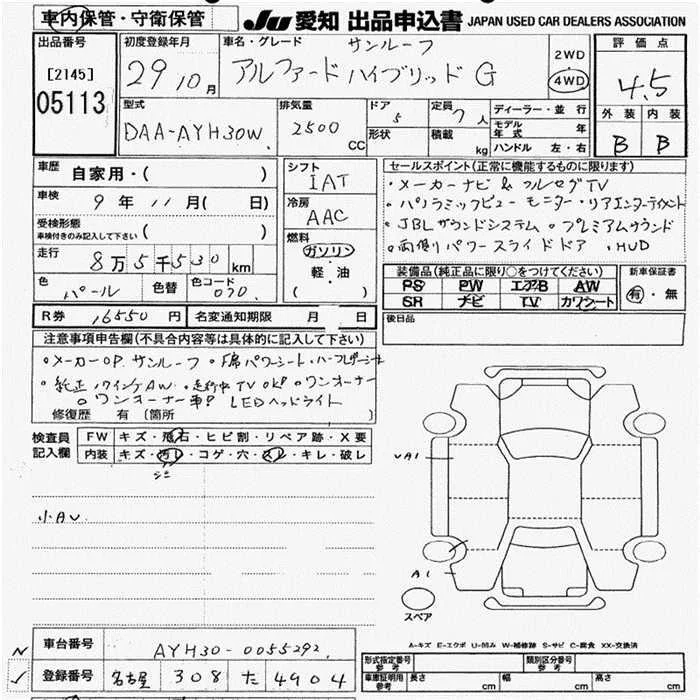 車内保管・守衛保管
JU 愛知 出品申込書 JAPAN USED CAR DEALERS ASSOCIATION
出品番号 [2145] 05113
初度登録年月 29 10 月
車名・グレード サンルーフ
アルファードハイブリッド G
2WD
4WD
評価点
4.5
外装 内装
B B
型式 DAA-AYH30W
排気量 2500 CC
ドア 5
形状
定員 7 人
積載 kg
ディーラー・並行
モデル年式 年
ハンドル 左・右
車歴 自家用・( )
車検 9 年 11 月( 日)
受検形態
車検付きのみ記入して下さい ( )
走行 8 万 5 千 530 km
色 パール 色替 色コード 070
シフト IAT
冷房 AAC
燃料
ガソリン
軽・油
( )
セールスポイント(正常に機能するものに限ります)
・メーカーナビ & フルセグTV
・パノラミックビューモニター・リアエンターテイメント
・JBLサウンドシステム ・プレミアムサウンド
・両側パワースライドドア ・HUD
装備品(純正品に限り○をつけてください)
PS PW エアB AW
SR ナビ TV カワシート
新車保証書
有・無
R券 16550 円 名変通知期限 月 日
後日品
注意事項申告欄(不具合内容等は具体的に記入して下さい)
・メーカーOP サンルーフ ・F席パワーシート・ハーフレザーシート
・純正 AW ・走行中TV OK! ・ワンオーナー
・ワンオーナー車! LEDヘッドライト
修復歴 有 〔箇所 〕
検査員記入欄
FW キズ・飛石・ヒビ割・リペア跡・X要
内装 キズ・汚レ・コゲ・穴・スレ・キレ・破レ
シミ
小AU
UA1
A1
スペア
A-キズ E-エクボ U-凹み W-補修跡 S-サビ C-腐食 XX-交換済
N 車台番号 AYH30-0055292
✓ 登録番号 名古屋 308 た 4904
形式指定番号 参考 類別区分番号 参考
車庫証明用 参考 長さ cm 幅 cm 高さ cm